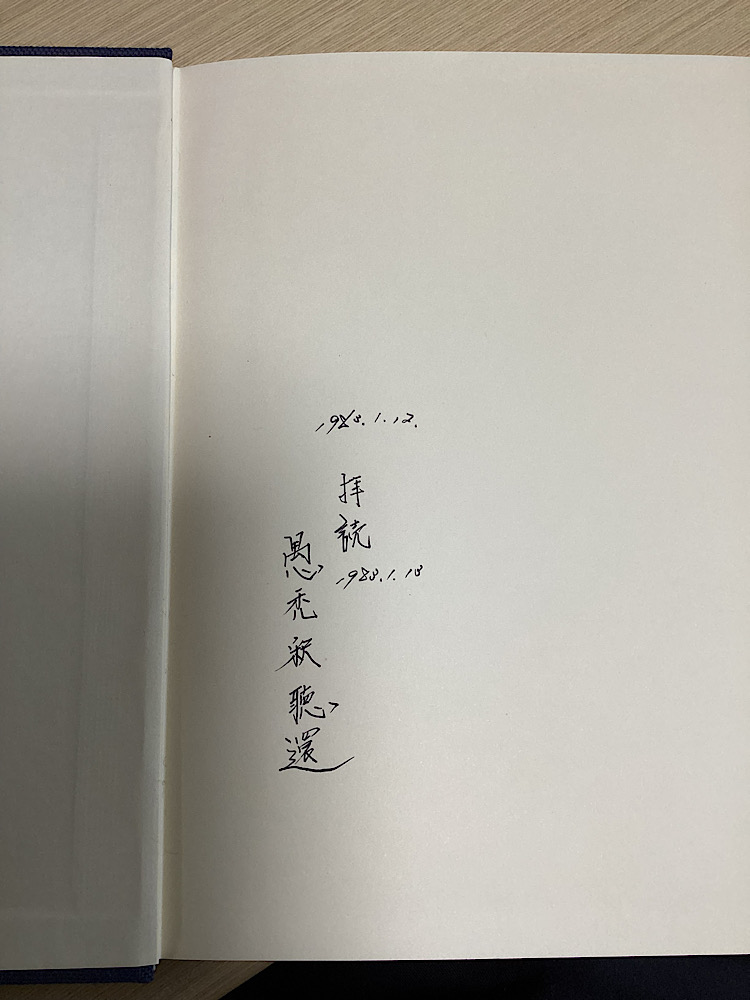 1988.1.12.
拝読
1988.1.18
愚禿釈聴還